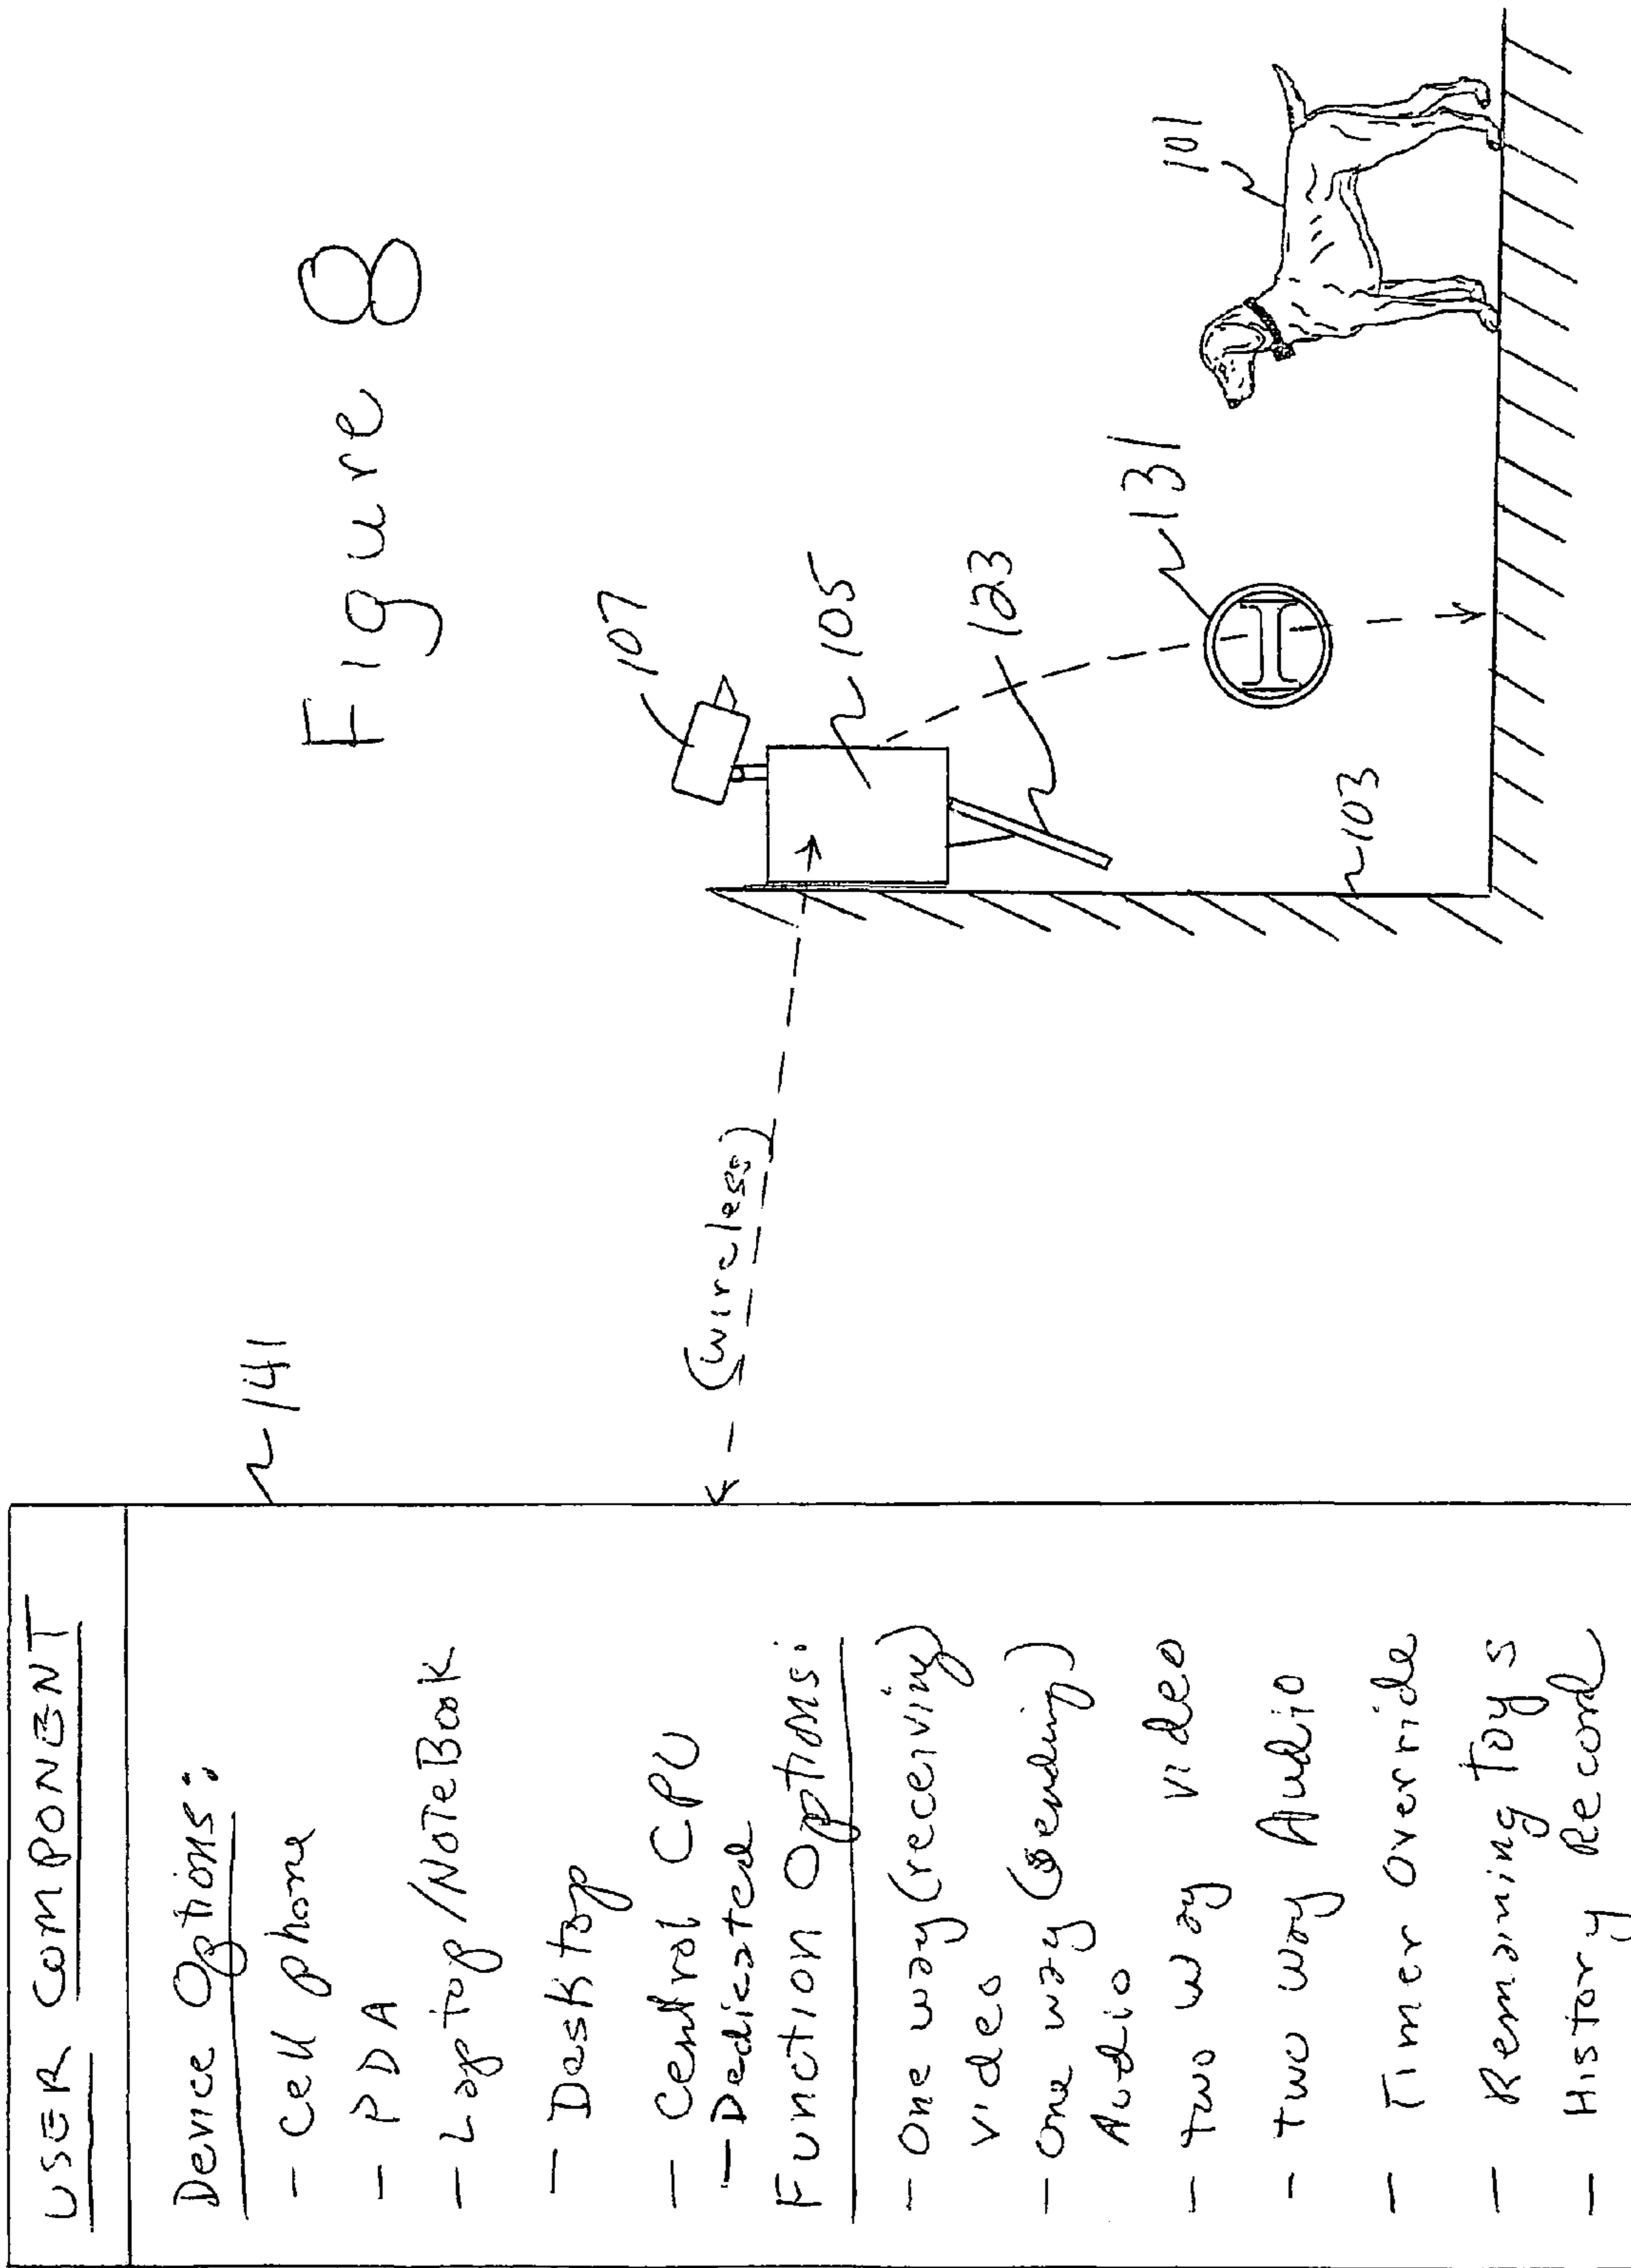 USER COMPONENT
Device Options:
- Cell phone
- PDA
- Laptop/NoTeBook
- Desktop
- Central CPU
- Dedicated
Function Options:
- One way (receiving)
video
- One way (sending)
Audio
- two way video
- two way Audio
- Timer override
- Remaining Toys
- History Record
141
(wireless)
Figure 8
107
105
123
131
101
103